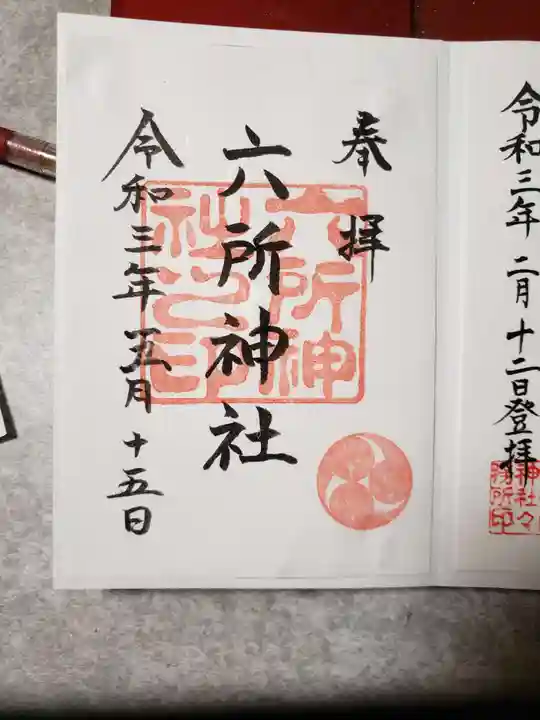 令和三年 二月 十二日登拝
神社々
務所印
奉拝
六所神社
六所神
社之印
令和三年 五月 十五日